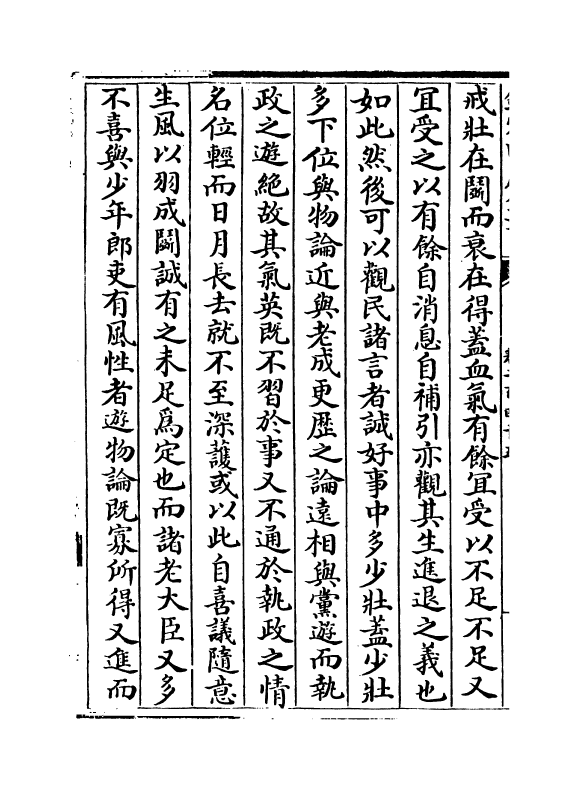 戒壯在鬭而衰在得蓋血氣有餘宜受以不足不足又
宜受之以有餘自消息自補引亦觀其生進退之義也
如此然後可以觀民諸言者誠好事中多少壯蓋少壯
多下位與物論近與老成更歴之論遠相與黨遊而執
政之遊絶故其氣英既不習於事又不通於執政之情
名位輕而日月長去就不至深護或以此自喜議隨意
生風以羽成鬭誠有之未足爲定也而諸老大臣又多
不喜與少年郎吏有風性者遊物論既寡所得又進而